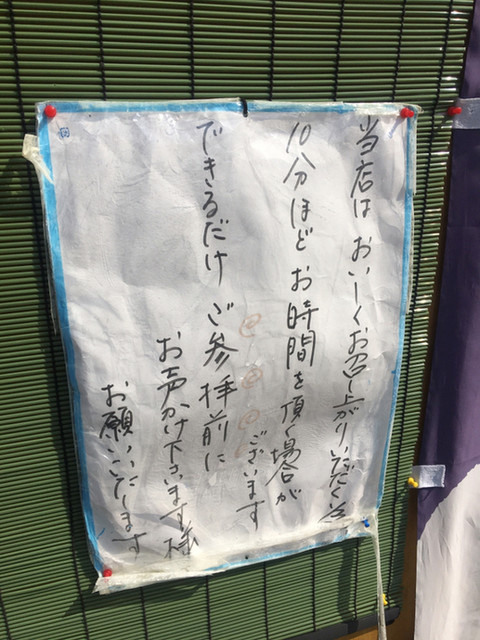 当店は おいしくお召し上がりいただく為
10分ほど お時間を頂く場合が
ございます
できるだけ ご参拝前に
お声かけ下さいます様
お願いいたします